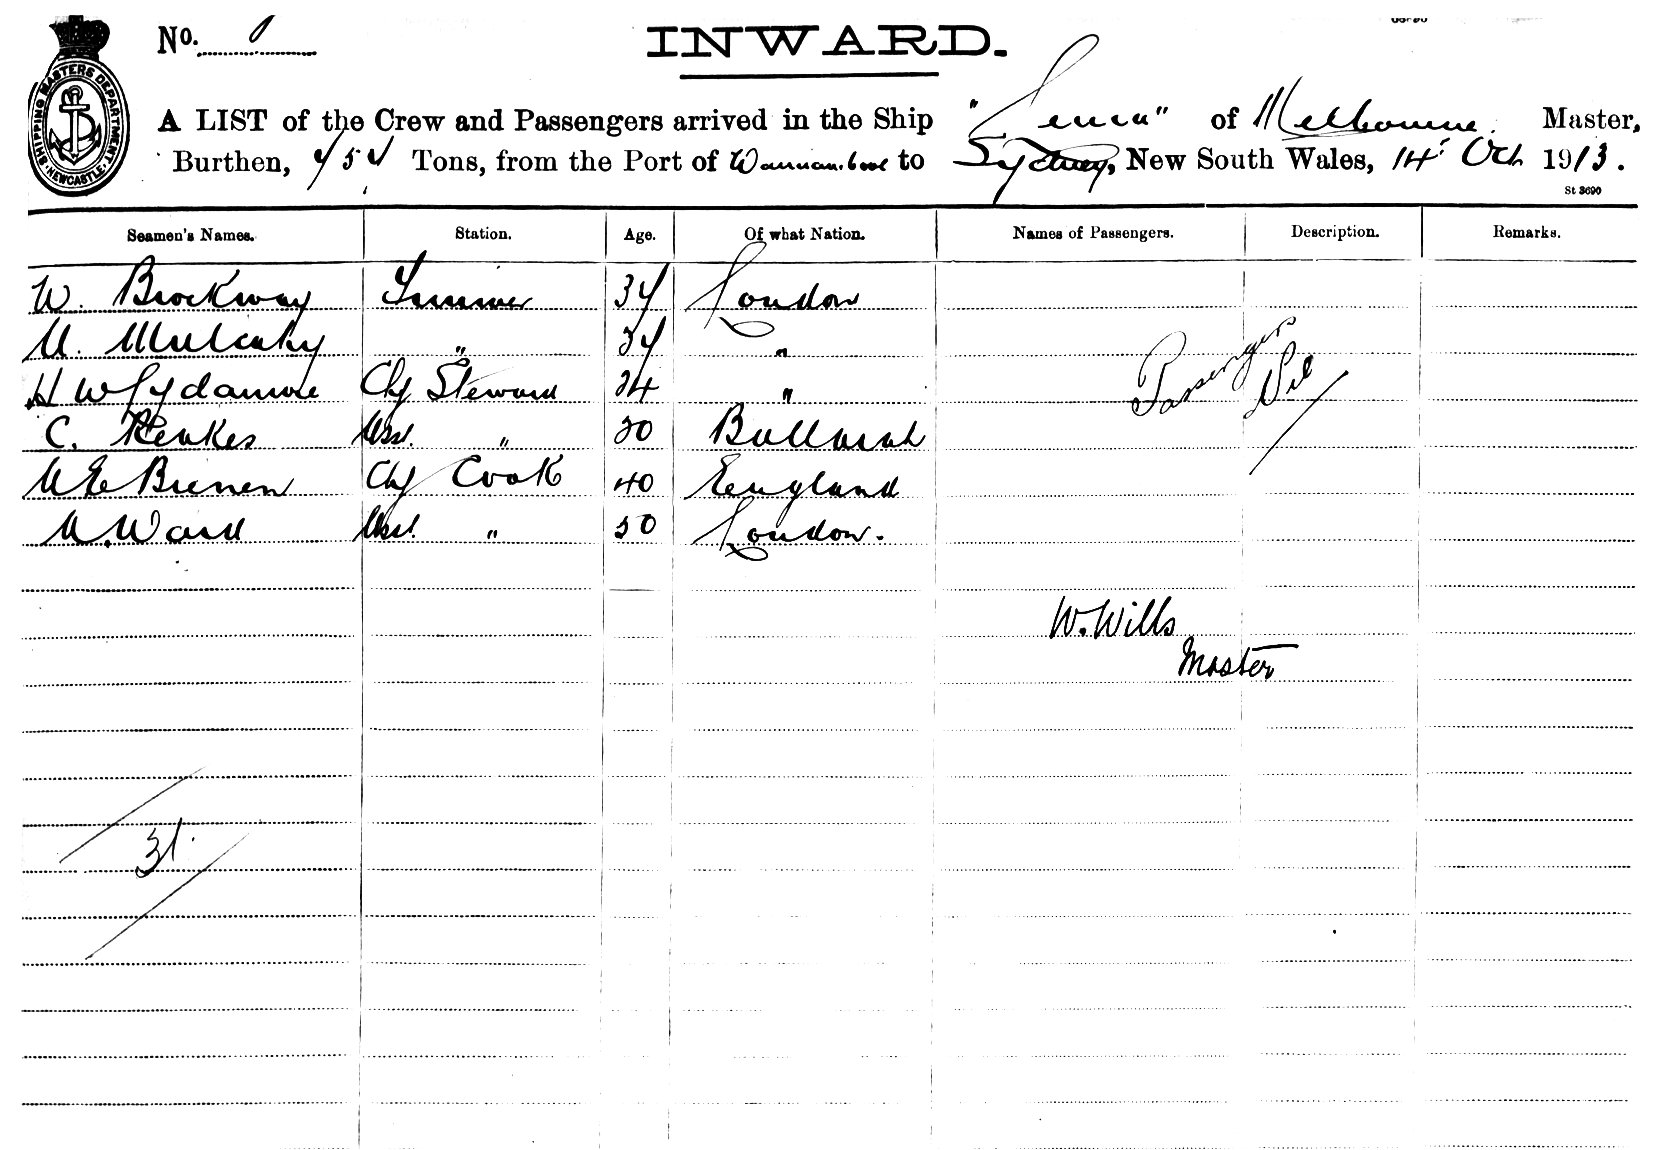 No. 1
INWARD.
SHIPPING MASTERS DEPARTMENT NEWCASTLE
A LIST of the Crew and Passengers arrived in the Ship " " of Melbourne Master,
Burthen, Tons, from the Port of Warrnambool to Sydney, New South Wales, 14 Oct 1913.
St 3690
Seamen's Names. Station. Age. Of what Nation. Names of Passengers. Description. Remarks.
W. Brockway Trimmer 34 London
M. Mulcahy " 34 "
H W Chf Steward 24 "
C. Asst. " 20 Ballarat
Chf Cook 40 England
Ward Asst. " 50 London.
Passengers
Nil
W. Wills
Master
31.